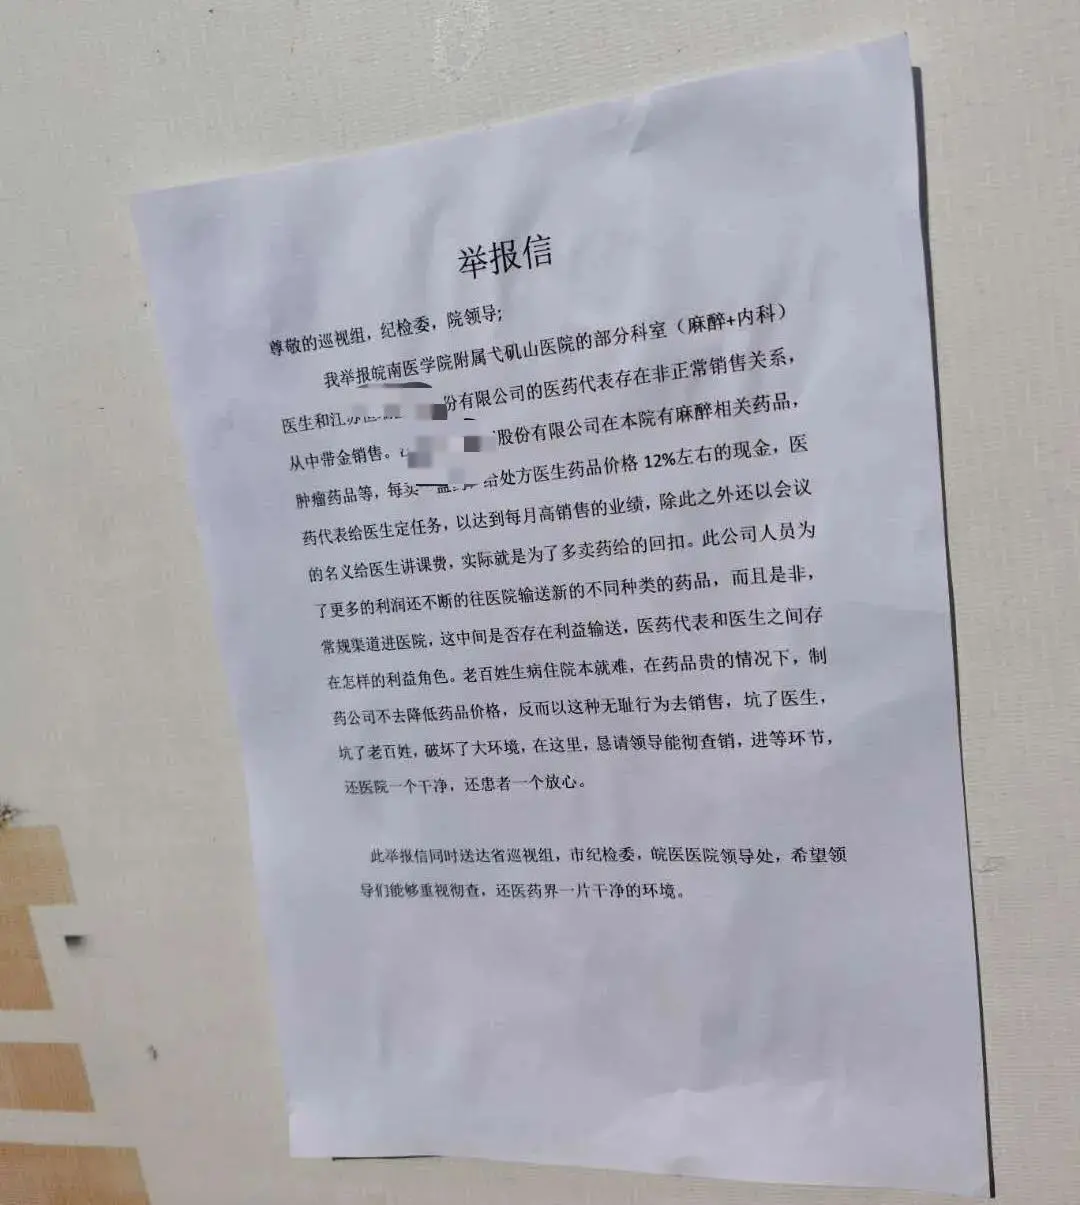 举报信
尊敬的巡视组，纪检委，院领导;
我举报皖南医学院附属弋矶山医院的部分科室（麻醉+内科）
医生和江苏 份有限公司的医药代表存在非正常销售关系，
从中带金销售。 股份有限公司在本院有麻醉相关药品，
肿瘤药品等，每卖一盒药 给处方医生药品价格 12%左右的现金，医
药代表给医生定任务，以达到每月高销售的业绩，除此之外还以会议
的名义给医生讲课费，实际就是为了多卖药给的回扣。此公司人员为
了更多的利润还不断的往医院输送新的不同种类的药品，而且是非，
常规渠道进医院，这中间是否存在利益输送，医药代表和医生之间存
在怎样的利益角色。老百姓生病住院本就难，在药品贵的情况下，制
药公司不去降低药品价格，反而以这种无耻行为去销售，坑了医生，
坑了老百姓，破坏了大环境，在这里，恳请领导能彻查销，进等环节，
还医院一个干净，还患者一个放心。
此举报信同时送达省巡视组，市纪检委，皖医医院领导处，希望领
导们能够重视彻查，还医药界一片干净的环境。